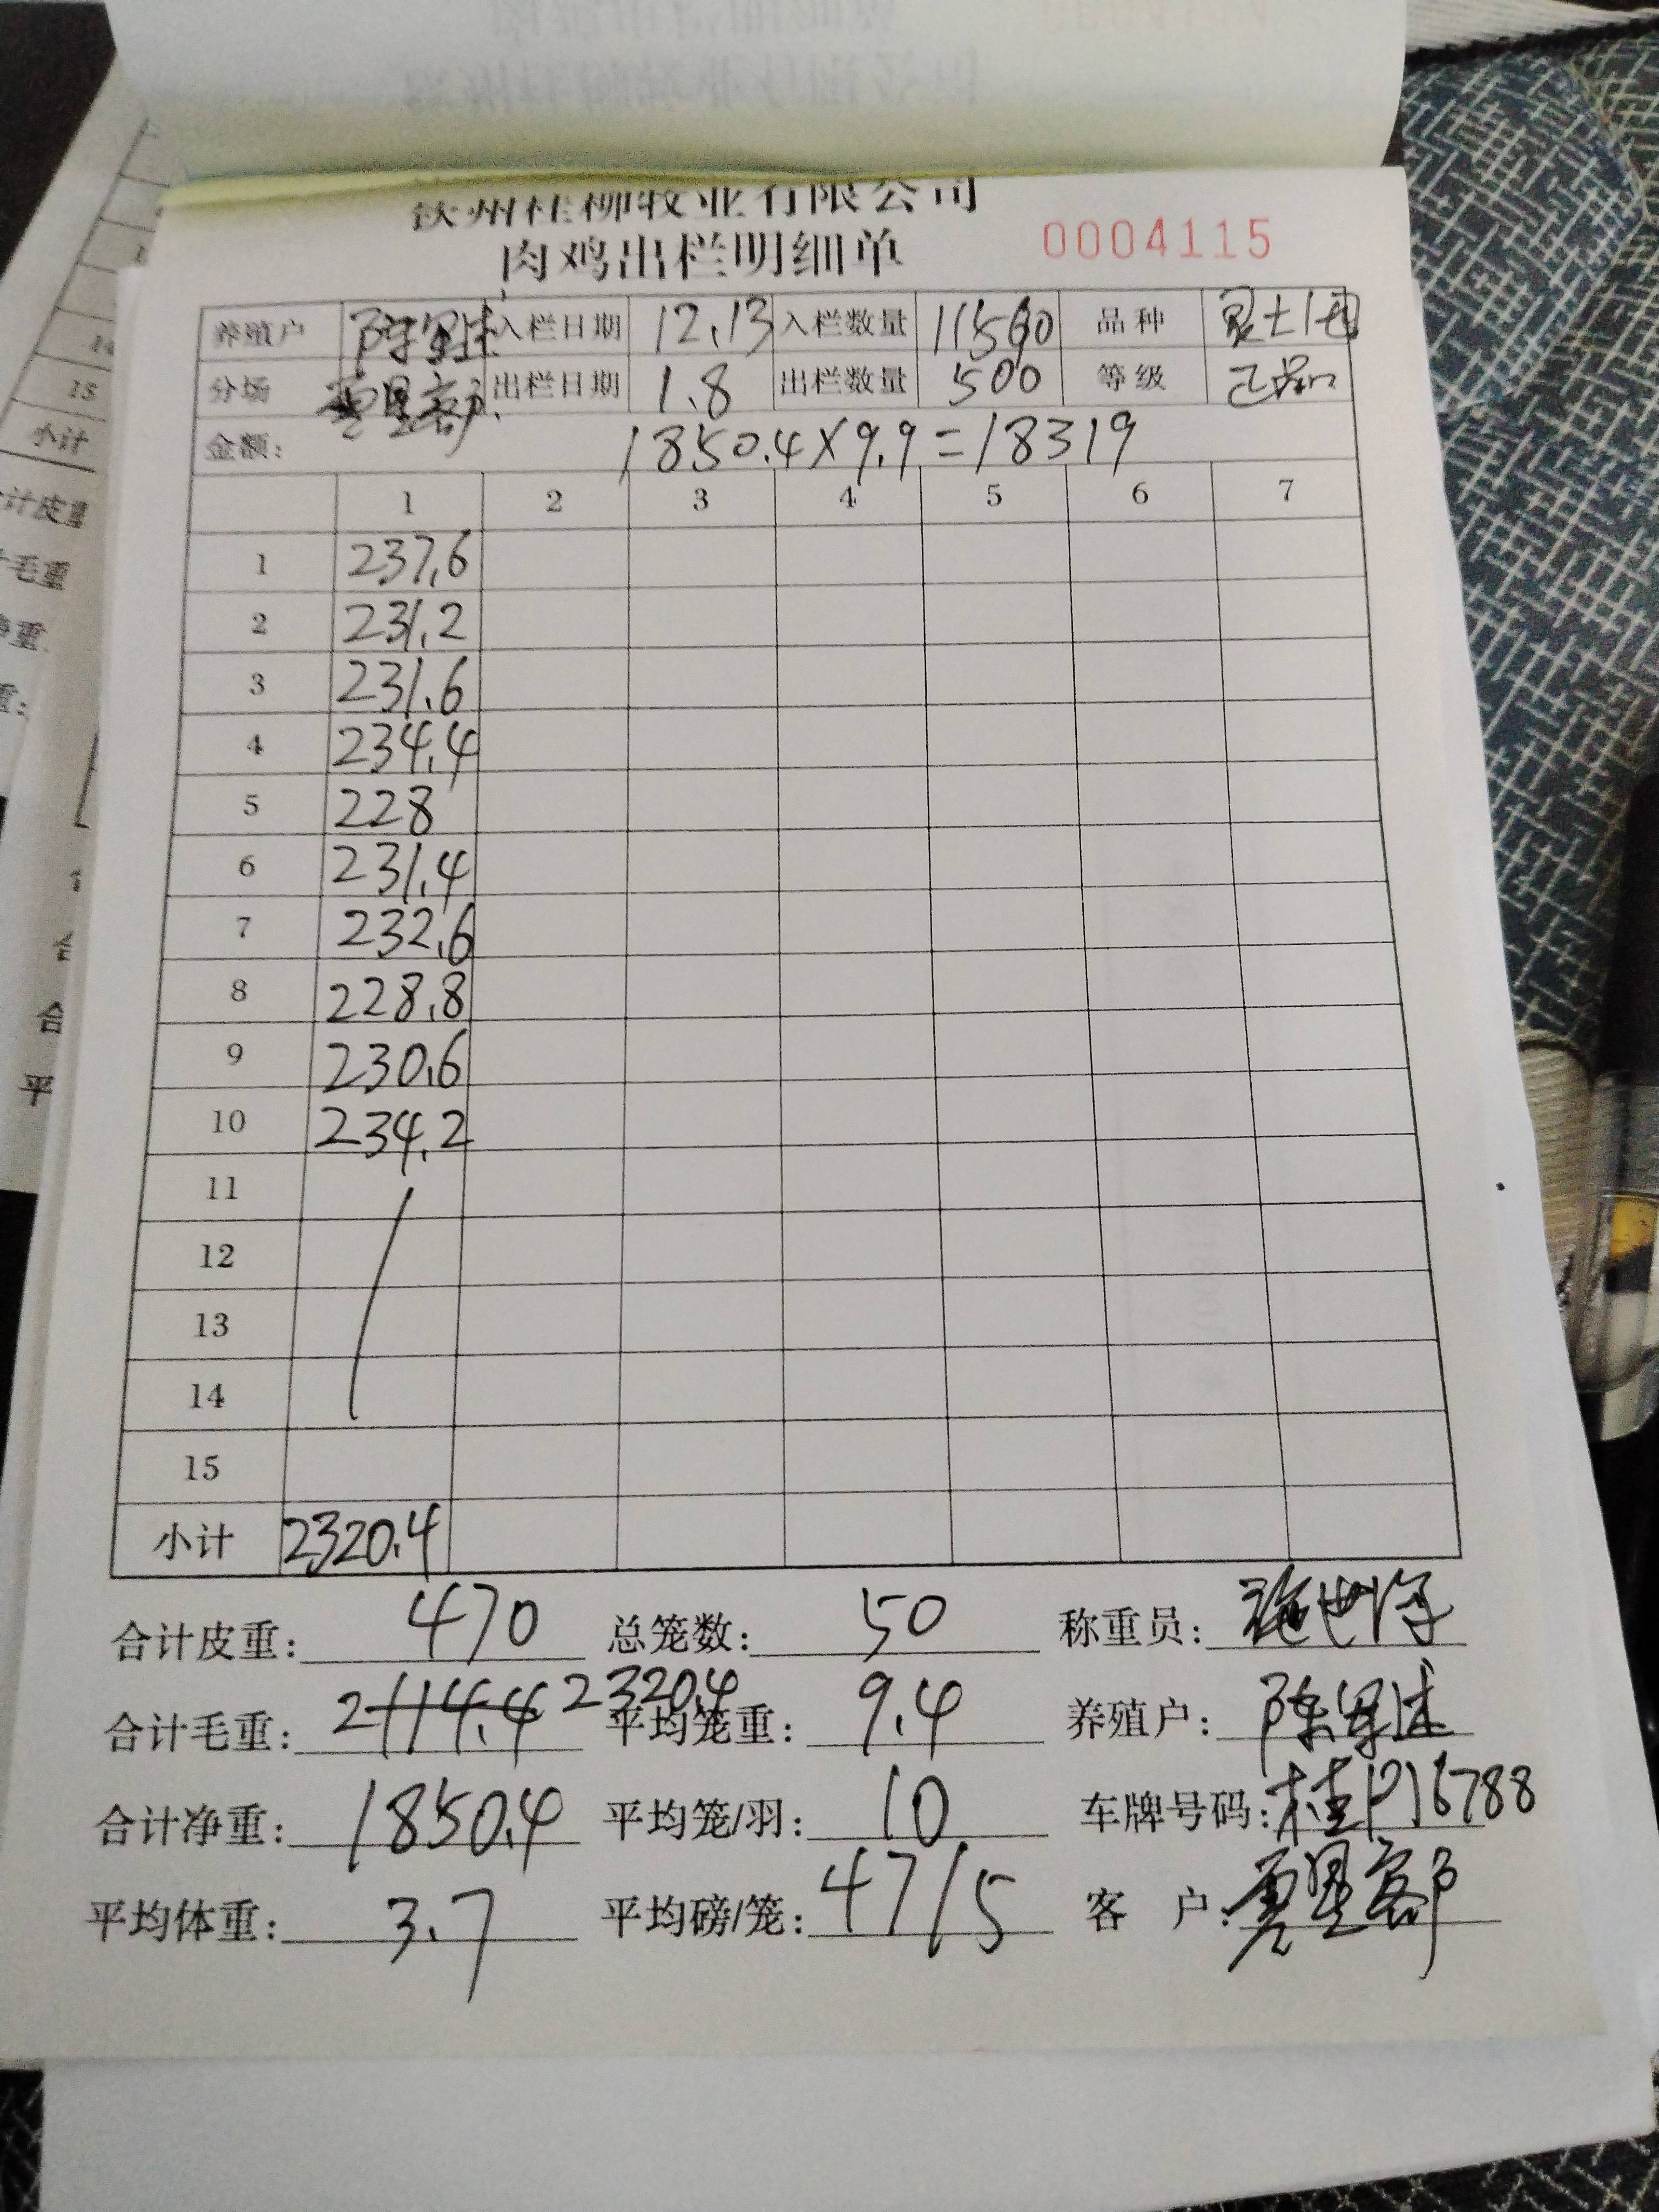 钦州桂柳牧业有限公司
肉鸡出栏明细单 0004115
养殖户 陈 入栏日期 12.13 入栏数量 11500 品种
分场 出栏日期 1.8 出栏数量 500 等级 乙品
金额: 1850.4×9.9=18319
1 2 3 4 5 6 7
1 237.6
2 231.2
3 231.6
4 234.4
5 228
6 231.4
7 232.6
8 228.8
9 230.6
10 234.2
11
12
13
14
15
小计 2320.4
合计皮重: 470 总笼数: 50 称重员: 施世
合计毛重: 2114.4 2320.4 平均笼重: 9.4 养殖户: 陈
合计净重: 1850.4 平均笼/羽: 10 车牌号码: 桂P16788
平均体重: 3.7 平均磅/笼: 47/5 客 户:
15
小计
计皮重
毛重
重
重:
合
平